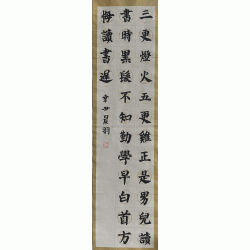 三更燈火五更雞正是男兒讀
書時黑髮不知勤學早白首方
悔讀書遲